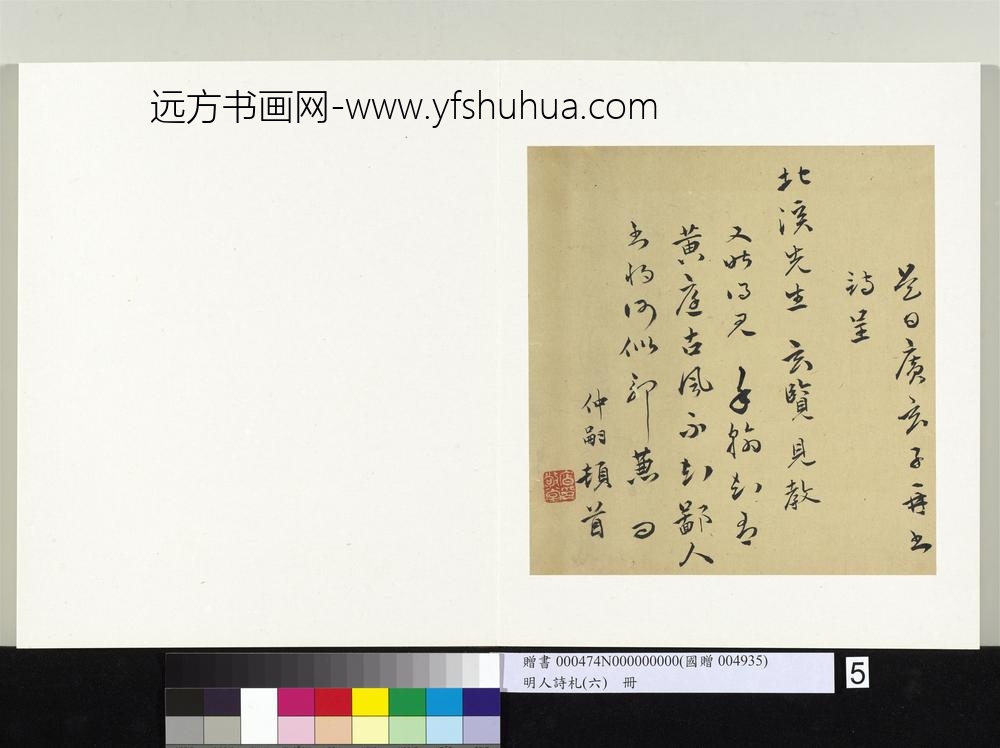 远方书画网-www.yfshuhua.com
是日廣玄子再書
詩呈
北溪先生 玄覽見教
又昨得見 手翰知有
黃庭古風不知鄙人
書得何似印 蕙
仲嗣頓首
贈書 000474N000000000(國贈 004935)
明人詩札(六) 冊
5